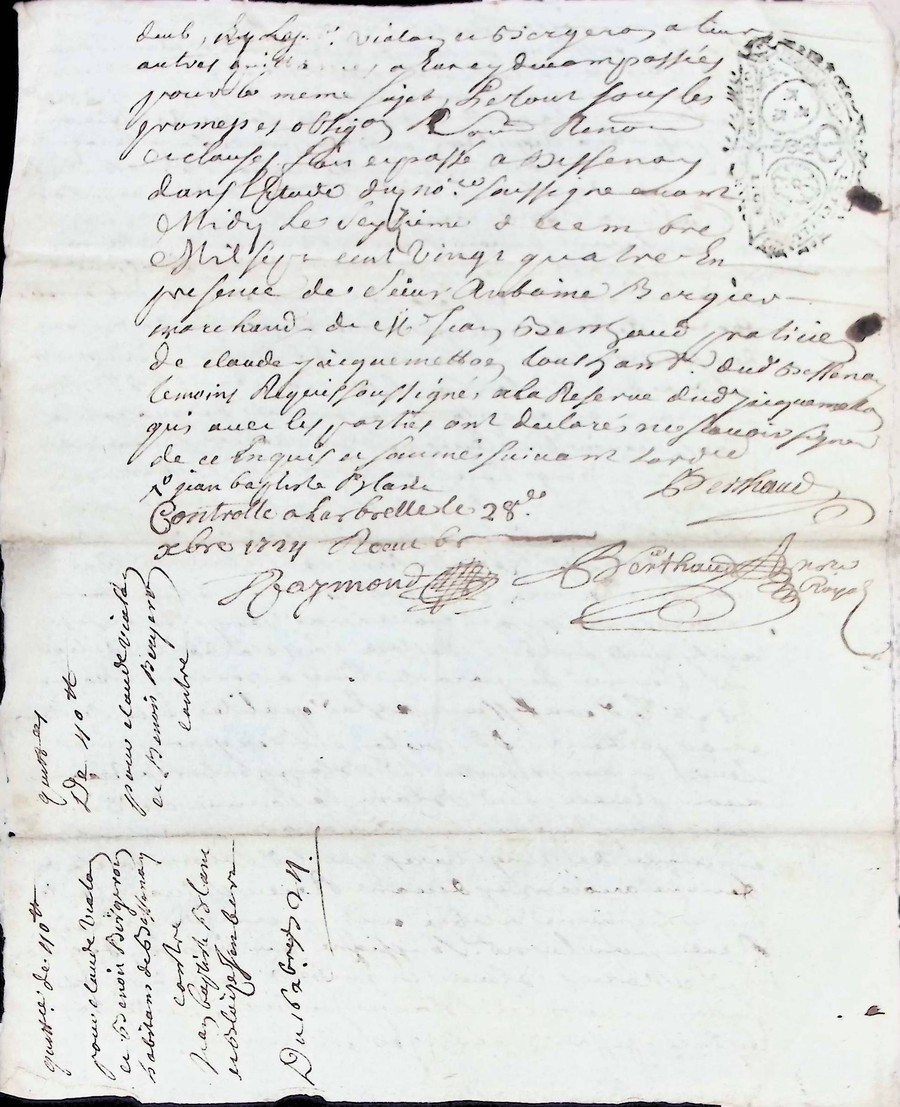 deub, viala, et Bergeron a
autres quittances a eux cy devant passées
pour le même sujet, Le tout sous les
promesses obligaõn Renõn
et clauses fait et passé a Bessenay
dans l'Etude du no.re soussigné avant
Midy Le seizième decembre
Mil sept cent vingt quatre En
presence de sieur Antoine Bergier
marchand de Mr jean Berthaud praticien
de claude jacquemetton tous hant. dud Bessenay
temoins Requis soussignés a la Reserve dud jacquemetton
qui avec les parties ont declarés ne scavoir signer
de ce Enquis et sommés suivant lordce
jean baptiste Blanc
Berthaud
Controllé a Larbrelle le 28.
xbre 1724 Receu
Raymond
Berthaud nore Royal
quittces
De 40tt
pour claude viala
et Benoit Bergeron
contre
quittce de 40tt
pour claude viala
et Benoit Bergeron
habitans de Bessenay
contre
jean baptiste Blanc
Du 16 xbre 1724.